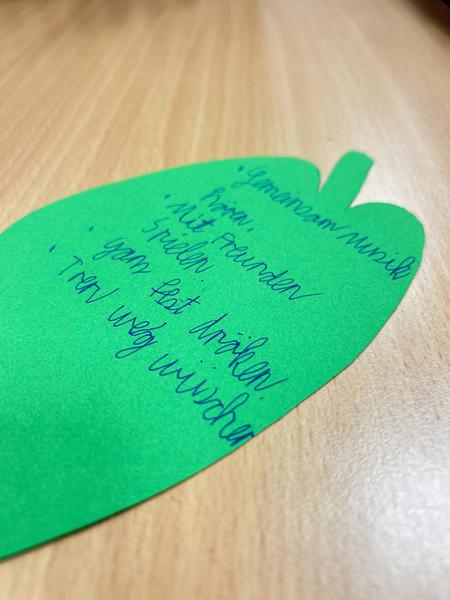 · Gemeinsam Musik
hören,
· Mit Freunden
Spielen
· ganz fest drüken
· Tren weg wischen